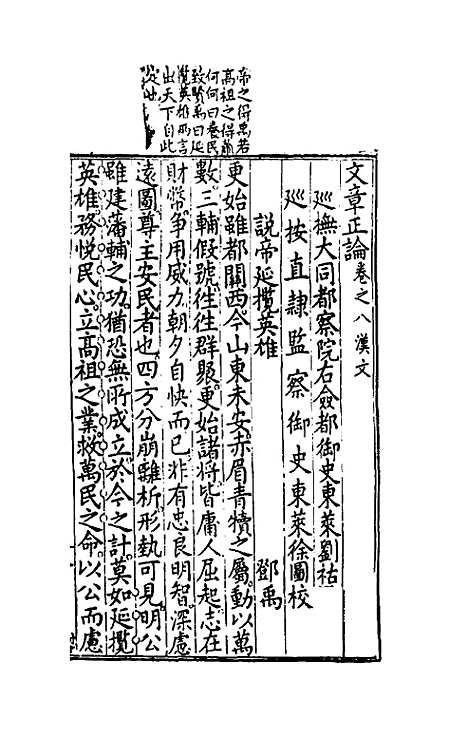 帝之得禹若
高祖之得蕭
何何曰養民
致賢禹曰延
攬英雄兩言
出天下自此
定世
文章正論卷之八漢文
廵撫大同都察院右僉都御史東萊劉祜
廵按直隷監察御史東萊徐圖校
說帝延攬英雄
鄧禹
更始雖都關西今山東未安赤眉青犢之屬動以萬
數三輔假號徃徃群聚更始諸將皆庸人屈起志在
財幣爭用威力朝夕自快而已非有忠良明智深慮
遠圖尊主安民者也四方分崩離析形埶可見明公
雖建藩輔之功猶恐無所成立於今之計莫如延攬
英雄務悅民心立高祖之業救萬民之命以公而慮